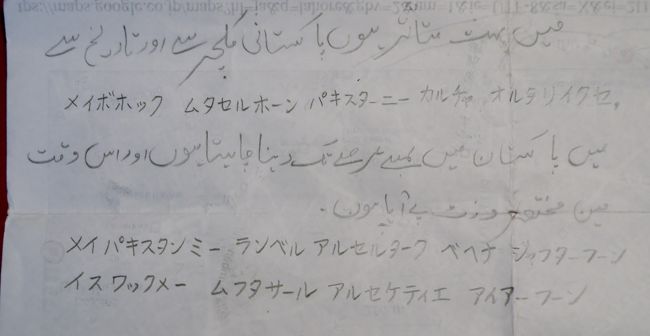 میں بہت متاثر ہوں پاکستانی کلچر سے اور تاریخ سے
メイボホック ムタセルホーン パキスターニー カルチャ オルタリイクセ。
میں پاکستان میں لمبے عرصے تک رہنا چاہتا ہوں اور اس وقت
میں مختصر وزٹ پے آیا ہوں۔
メイパキスタンミー ランベル アルセルターク ベヘナ ジャフターフーン
イスワックメー ムフタサール アルセケティエ アイアーフーン